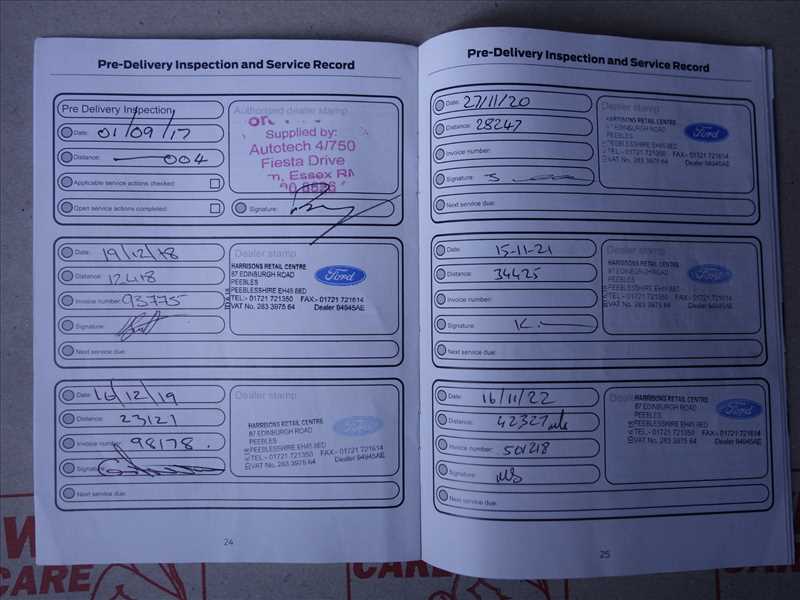 Pre-Delivery Inspection and Service Record
Pre Delivery Inspection
Date: 01/09/17
Distance: 004
Applicable service actions checked
Open service actions completed
Authorised dealer stamp
Supplied by:
Autotech 4/750
Fiesta Drive
Essex RM
Signature:
Date: 19/12/18
Distance: 12418
Invoice number: 93775
Signature:
Next service due:
Dealer stamp
HARRISONS RETAIL CENTRE
87 EDINBURGH ROAD
PEEBLES
PEEBLESSHIRE EH45 8ED
TEL:- 01721 721350 FAX:- 01721 721614
VAT No. 283 3975 64 Dealer 94945AE
Ford
Date: 16/12/19
Distance: 23121
Invoice number: 98178.
Signature:
Next service due:
Dealer stamp
HARRISONS RETAIL CENTRE
87 EDINBURGH ROAD
PEEBLES
PEEBLESSHIRE EH45 8ED
TEL:- 01721 721350 FAX:- 01721 721614
VAT No. 283 3975 64 Dealer 94945AE
Ford
24
Pre-Delivery Inspection and Service Record
Date: 27/11/20
Distance: 28247
Invoice number:
Signature:
Next service due:
Dealer stamp
HARRISONS RETAIL CENTRE
EDINBURGH ROAD
PEEBLES
PEEBLESSHIRE EH45 8ED
TEL:- 01721 721350 FAX:- 01721 721614
VAT No. 283 3975 64 Dealer 94945AE
Ford
Date: 15-11-21
Distance: 34425
Invoice number:
Signature:
Next service due:
Dealer stamp
HARRISONS RETAIL CENTRE
87 EDINBURGH ROAD
PEEBLES
PEEBLESSHIRE EH45 8ED
TEL:- 01721 721350 FAX:- 01721 721614
VAT No. 283 3975 64 Dealer 94945AE
Ford
Date: 16/11/22
Distance: 42327
Invoice number: 501218
Signature:
Next service due:
HARRISONS RETAIL CENTRE
87 EDINBURGH ROAD
PEEBLES
PEEBLESSHIRE EH45 8ED
TEL:- 01721 721350 FAX:- 01721 721614
VAT No. 283 3975 64 Dealer 94945AE
Ford
25
CARE
CARE
CARE